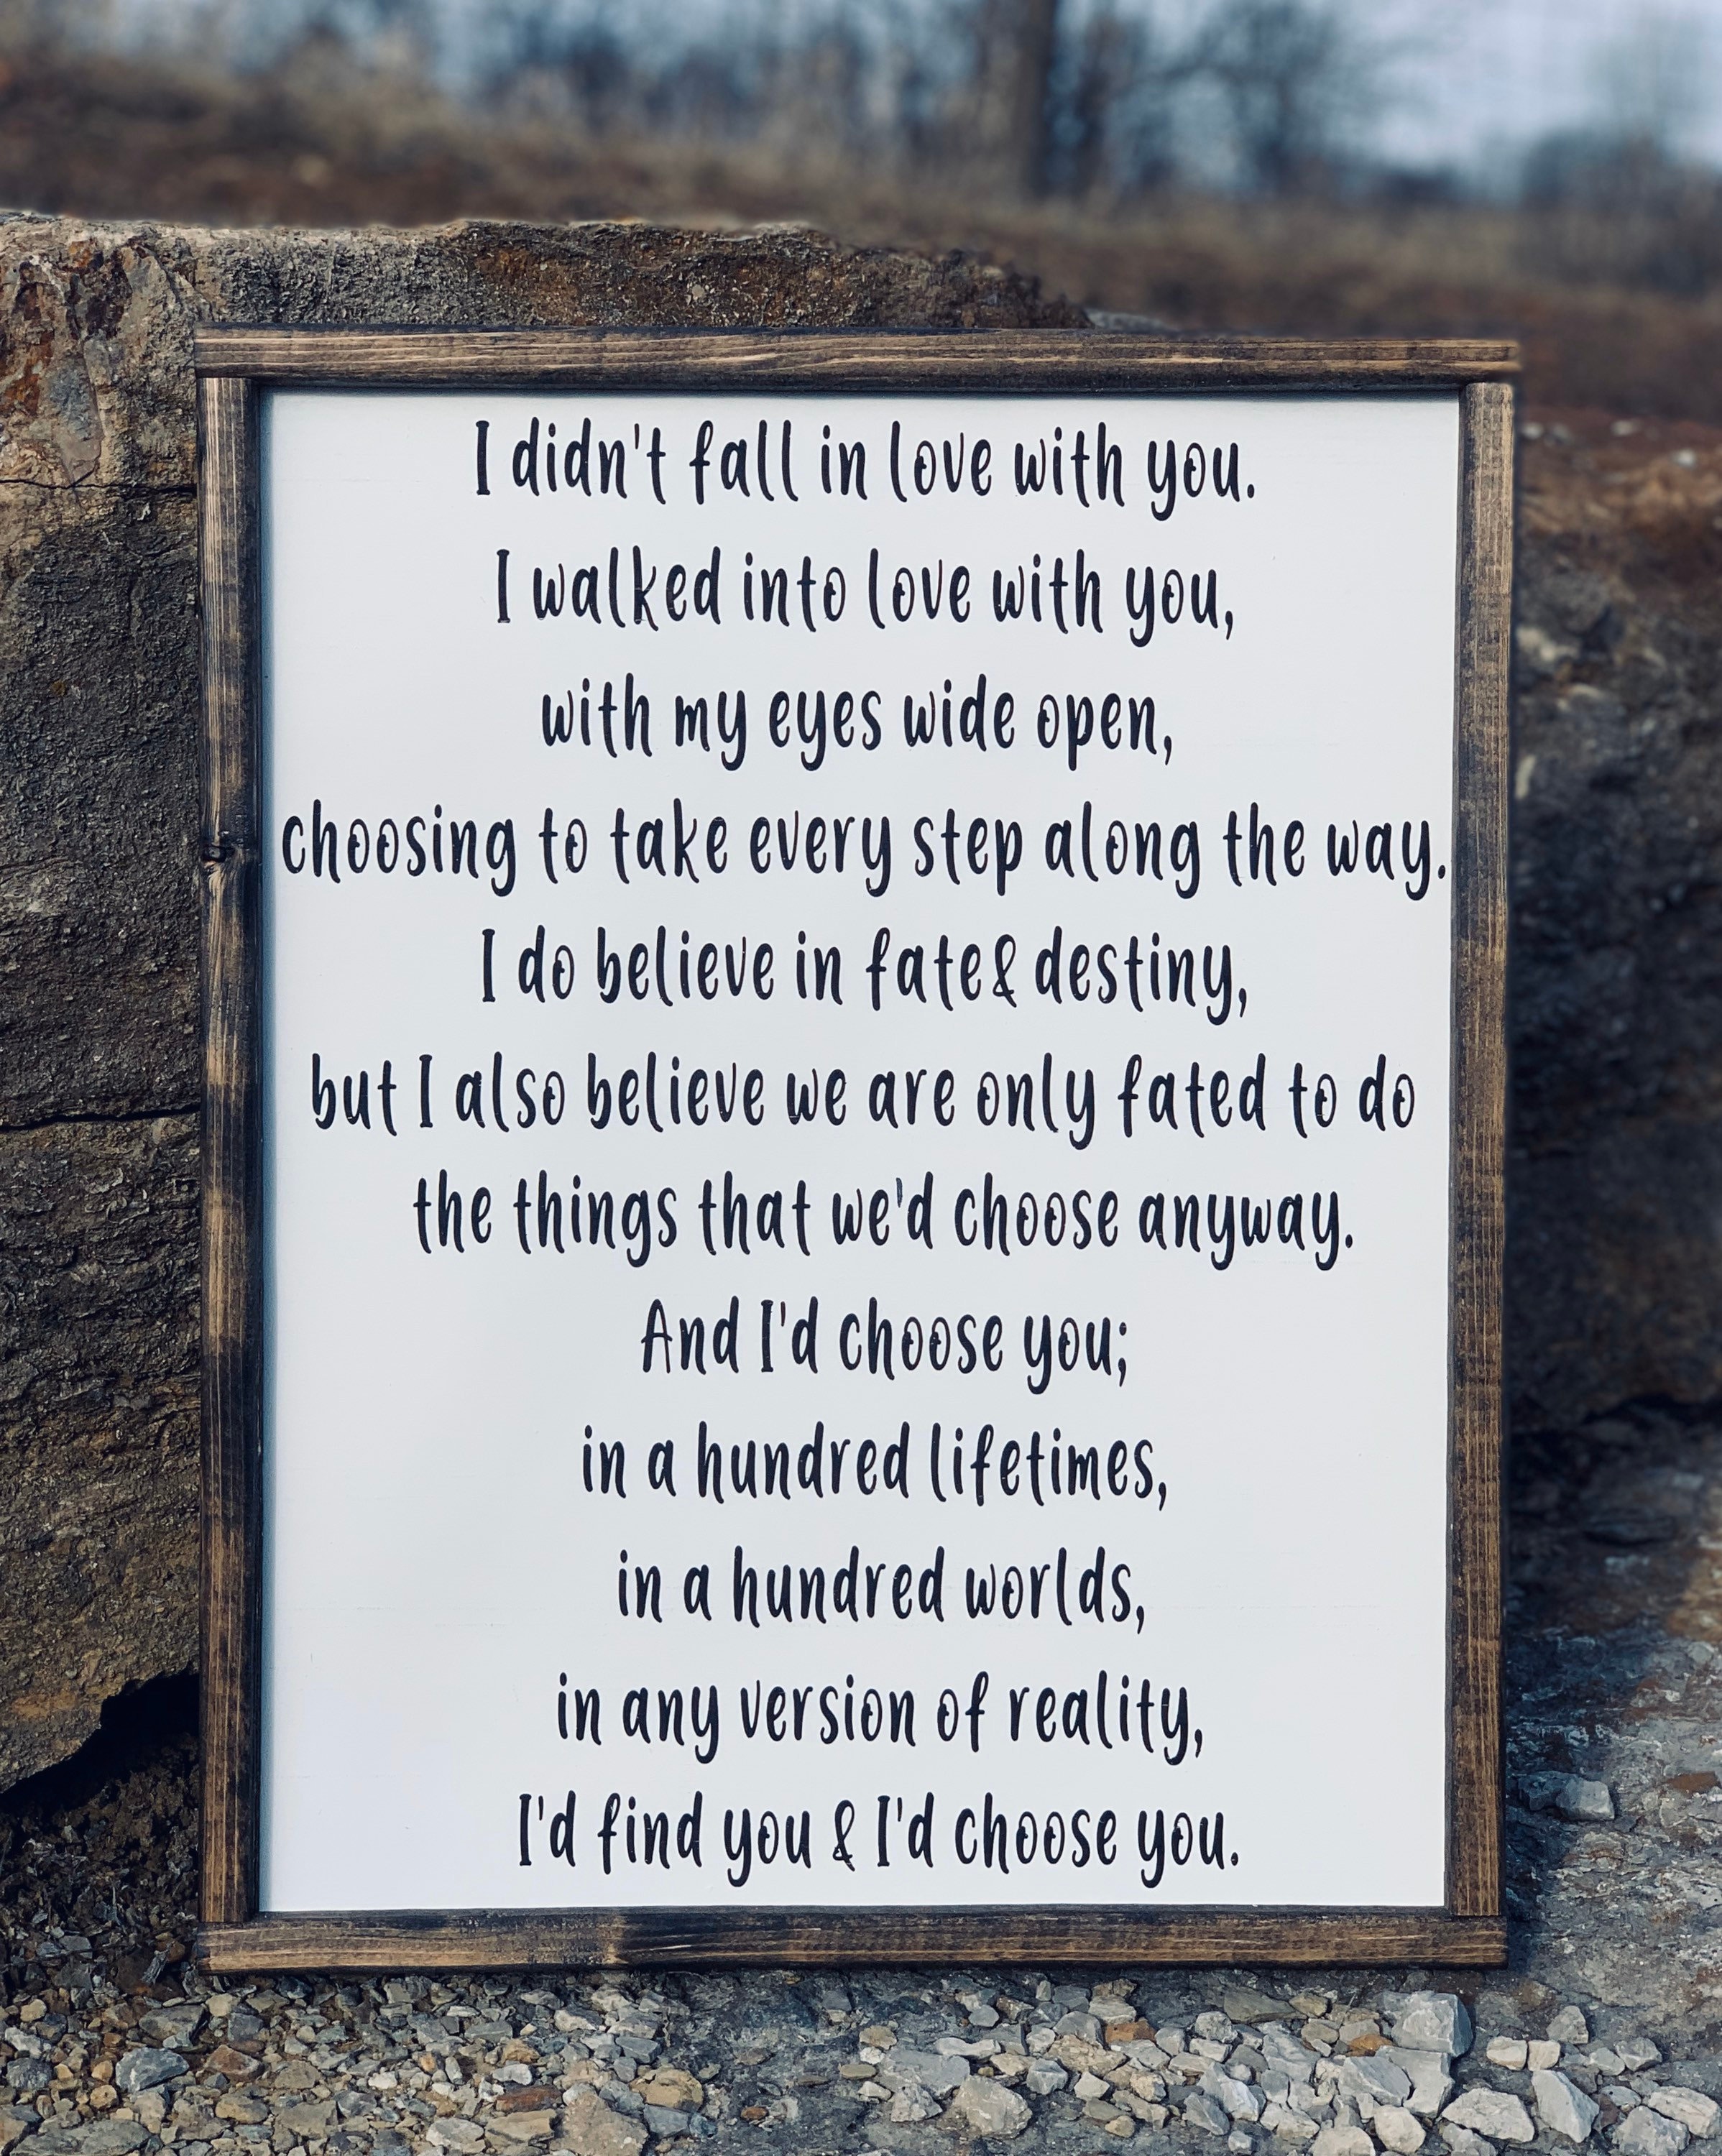 I didn't fall in love with you.
I walked into love with you,
with my eyes wide open,
choosing to take every step along the way.
I do believe in fate& destiny,
but I also believe we are only fated to do
the things that we'd choose anyway.
And I'd choose you;
in a hundred lifetimes,
in a hundred worlds,
in any version of reality,
I'd find you & I'd choose you.